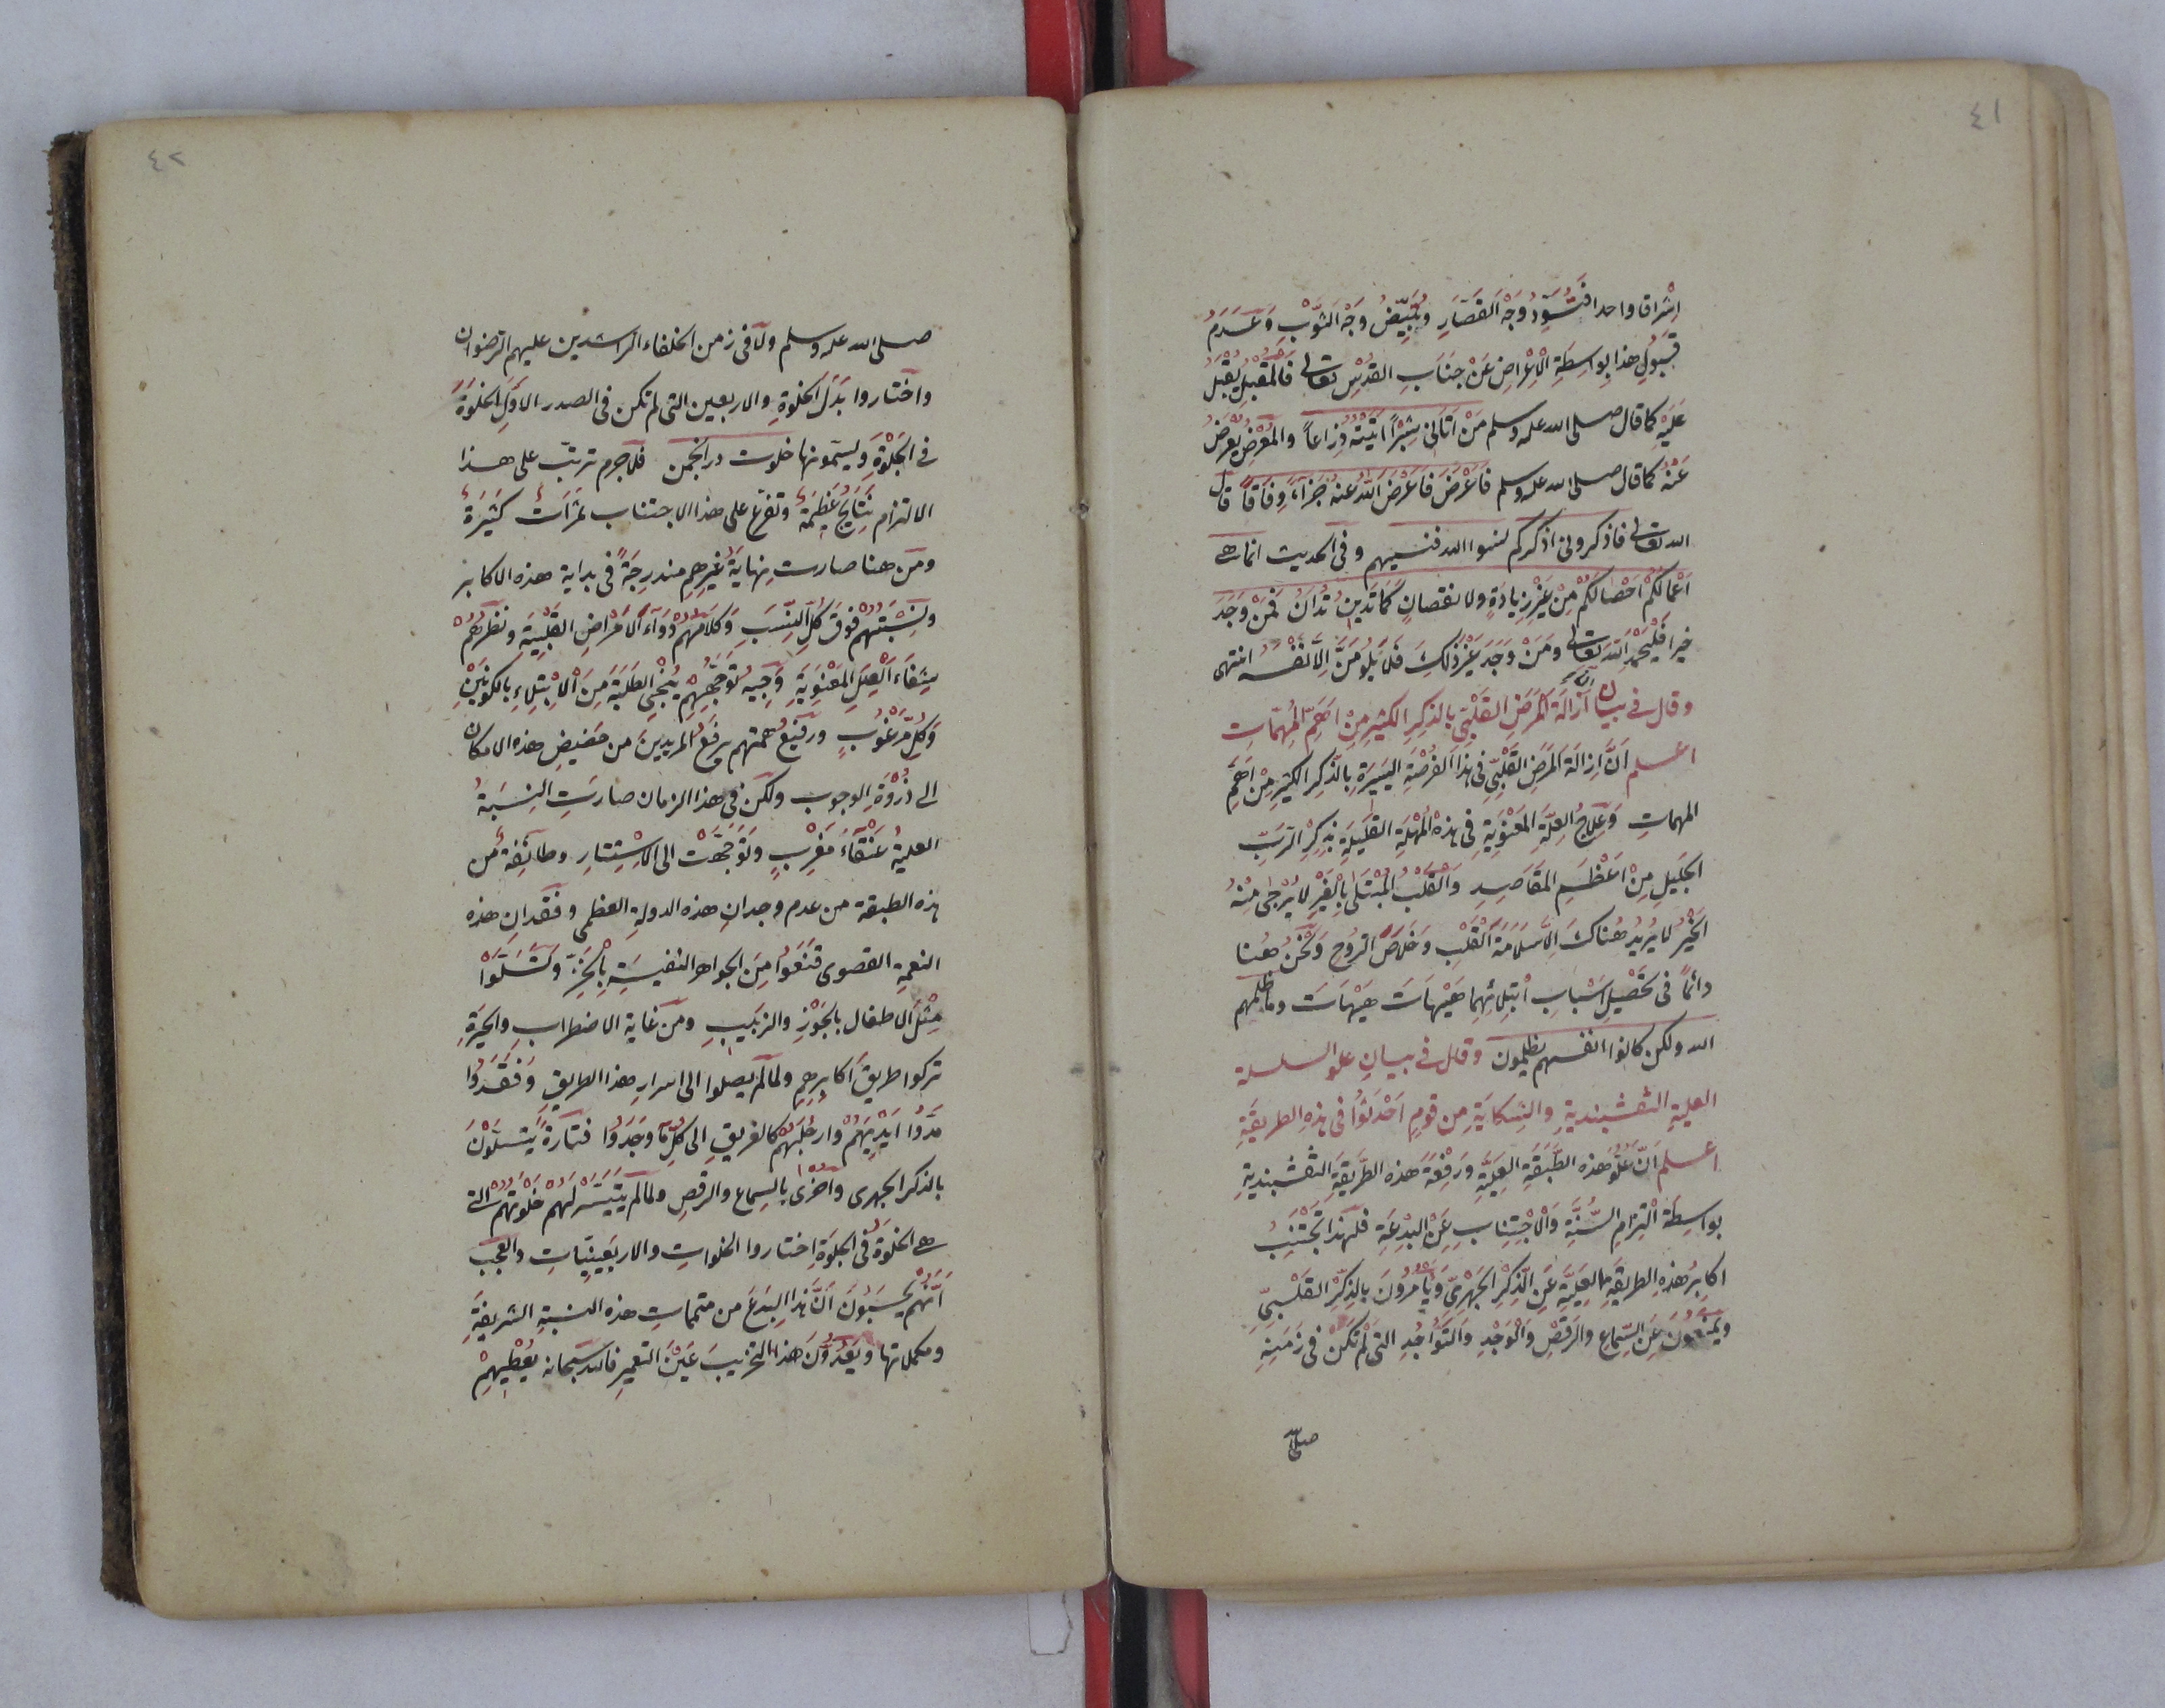 ٤١
اشراقا واحدا فتُسَوِّدُ وَجْهَ القَصَّارِ وتُبَيِّضُ وَجْهَ الثَّوْبِ وَعَدَمُ
قَبُولِ هذا بِوَاسِطَةِ الْاِعْرَاضِ عَنْ جَنَابِ القُدْسِ تعالى فَالمُقْبِلُ يُقْبَلُ
عَلَيْهِ كما قال صلى الله عليه وسلم مَنْ اَتَانِى شِبْرًا اَتَيْتُهُ ذِرَاعاً والمُعْرِضُ يُعْرَضُ
عَنْهُ كما قال صلى الله عليه وسلم فَاَعْرَضَ فَاَعْرَضَ اللهُ عنهُ جَزَآءً وِفَاقاً قال
الله تعالى فاذكرونى اذكركم نسوا الله فنسيهم وفى الحديث انما هى
اَعْمَالُكُمْ اُحْصَالَكُمْ مِنْ غَيْرِ زِيَادَةٍ ولا نقصانٍ كَمَا تَدِينُ تُدَانُ فَمَنْ وَجَدَ
خيرا فَلْيَحْمَدِ اللهَ تعالى ومَنْ وَجَدَ غَيْرَ ذلِكَ فَلَا يَلُومَنَّ اِلَّا نَفْسَهُ انتهى
وقال فى بيان اَنَّ اِزَالَةَ الْمَرَضِ القَلْبِىِّ بالذِكْرِ الكثيرِ مِنْ اَهَمِّ المُهِمَّاتِ
اعلم اَنَّ اِزَالَةَ المَرَضِ القَلْبِىِّ فِى هذا الفُرْصَةِ اليَسِيرَةِ بِالذِكْرِ الكثيرِ مِنْ اَهَمِّ
المهماتِ وَعِلَاجُ العِلَّةِ المَعْنَوِيَةِ فِى هذهِ المُهْلَةِ القَلِيلَةِ بِذِكْرِ الرَّبِّ
الجَلِيلِ مِنْ اَعْظَمِ المَقَاصِدِ وَالْقَلْبُ المُبْتَلَى بِالْغَيْرِ لَا يُرْجٰى مِنْهُ
الخَيْرُ لا يُرِيدُ هُنَاكَ اِلَّا سَلَامَةَ الْقَلْبِ وَخَلَاصَ الرُوحِ وَنَحْنُ هُنا
دائماً فى تَحْصِيلِ اَسْبابِ اُبْتِلائِهِمَا هَيْهَاتَ هَيْهَاتَ وما ظلمهم
الله ولكن كانوا انفسهم يظلمون وقال فى بيان علو السلسلة
العلية النقشبندية والشِكَايَةِ مِن قومٍ اَحْدَثُوا فى هذهِ الطريقةِ
اعلم اَنَّ عُلُوَّ هذه الطَّبَقَةِ العَلِيَّةِ وَرِفْعَةَ هذه الطَّرِيقَةِ النقشبنديةِ
بواسِطَةِ الْتِزَامِ السُّنَّةِ وَالْاجْتِنَابِ عَنِ البِدْعَةِ فلهذا تَجْتَنِبُ
اكابِرُ هذهِ الطريقةِ العَلِيَّةِ عَنِ الذِّكْرِ الجَهْرِىِّ وَيَأمُرُونَ بِالذِكْرِ القَلْبِىِّ
ويمنَعُونَ عَنِ السِّمَاعِ والرقصِ وَالْوَجْدِ وَالتَّوَاجُدِ التى لَمْ تَكُنْ فى زَمَنِهِ
صلى الله
٤٢
صلى الله عليه وسلم ولا فى زمن الخلفاء الراشدين عليهم الرضوان
واختاروا بَدَلَ الخلوةِ والاربعين التى لم تكن فى الصدر الاوَّلِ الخلوَةَ
فى الجَلْوَةِ ويسمّونها خلوت در انجمن فلاجرم ترتّب على هذا
الالتزام نَتَايِجُ عَظِيمَةٌ وتفرّع على هذا الاجتناب ثَمَرَاتٌ كَثِيرَةٌ
ومن هنا صارت نِهَايَةُ غَيْرِهِم مندرجَةً فى بداية هذه الاكابر
ونِسْبَتُهُمْ فَوْقَ كُلِّ النِّسَبِ وَكَلَامُهُمْ دَوَاءُ الاَمْرَاضِ القَلْبِيَةِ ونظرُهُمْ
شِفَاءُ العِلَلِ المَعْنَوِيَةِ وَجِيهُ تَوَجُّهِهِمْ يُنْجِى الطَلَبَةَ مِنَ الْاِبْتِلاءِ بالكونَيْنِ
وَكُلِّ مَرْغُوبٍ ورَفِيعُ همتهم يرفعُ المريدينَ من حضيضِ هذه الامكان
الى ذُرْوَةِ الوجوب ولكن فى هذا الزمان صارَتِ النِسْبَةُ
العليةُ عَنْقَآءَ مَغْرِبٍ وتَوَجَّهَتْ الى الاِسْتِتارِ وطائِفةٌ من
هذه الطبقة من عدم وجدانِ هذه الدولةِ العظمى وفقدانِ هذه
النعمةِ القصوى قنَعُوا مِنَ الجواهرِ النفيسَةِ بِالْخَزَفِ وَتَسَلَّوْا
مِثْلَ الاطفال بِالجَوْزِ والزبيبِ ومن غاية الاضطرابِ والحيرةِ
تركوا طريقَ اكابِرِهِم ولما لم يصلوا الى اسرار هذا الطريقِ وفَقَدُوا
مَدُّوا اَيْدِيَهُمْ وارجُلَهُمْ كالغريقِ الى كُلِّ ما وجَدُوا فتارةً يتسلَّوْنَ
بالذكر الجهرى واخرى بالسماع والرقصِ ولما لم يتَيَسَّرْ لَهُمْ خَلْوَتُهُمْ التى
هى الخلوةُ فى الجلوَةِ اختاروا الخلواتِ والاربَعِينِيّاتِ والعجَبُ
اَنَّهُمْ يَحْسَبُونَ اَنَّ هذا البِدَعَ من متممات هذه النسبةِ الشريفةِ
ومكملاتها ويَعُدُّونَ هذا التخريبَ عَيْنَ التعميرِ فالله سبحانه يُعْطِيهِمْ